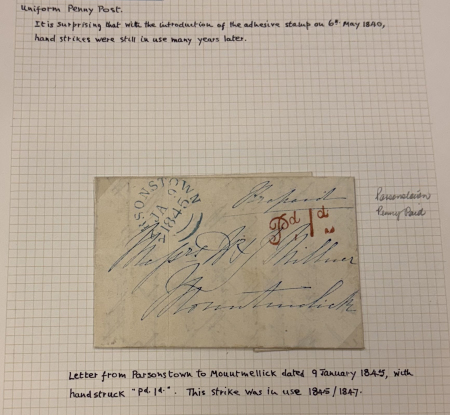 Uniform Penny Post.
It is surprising that with the introduction of the adhesive stamp on 6th May 1840,
hand strikes were still in use many years later.
PARSONSTOWN
JA 9
1845
Prepaid
Pd 1d
Messrs
Millner
Mountmelick
Penny Paid
Letter from Parsonstown to Mountmellick dated 9 January 1845, with
handstruck "Pd. 1d.". This strike was in use 1845/1847.